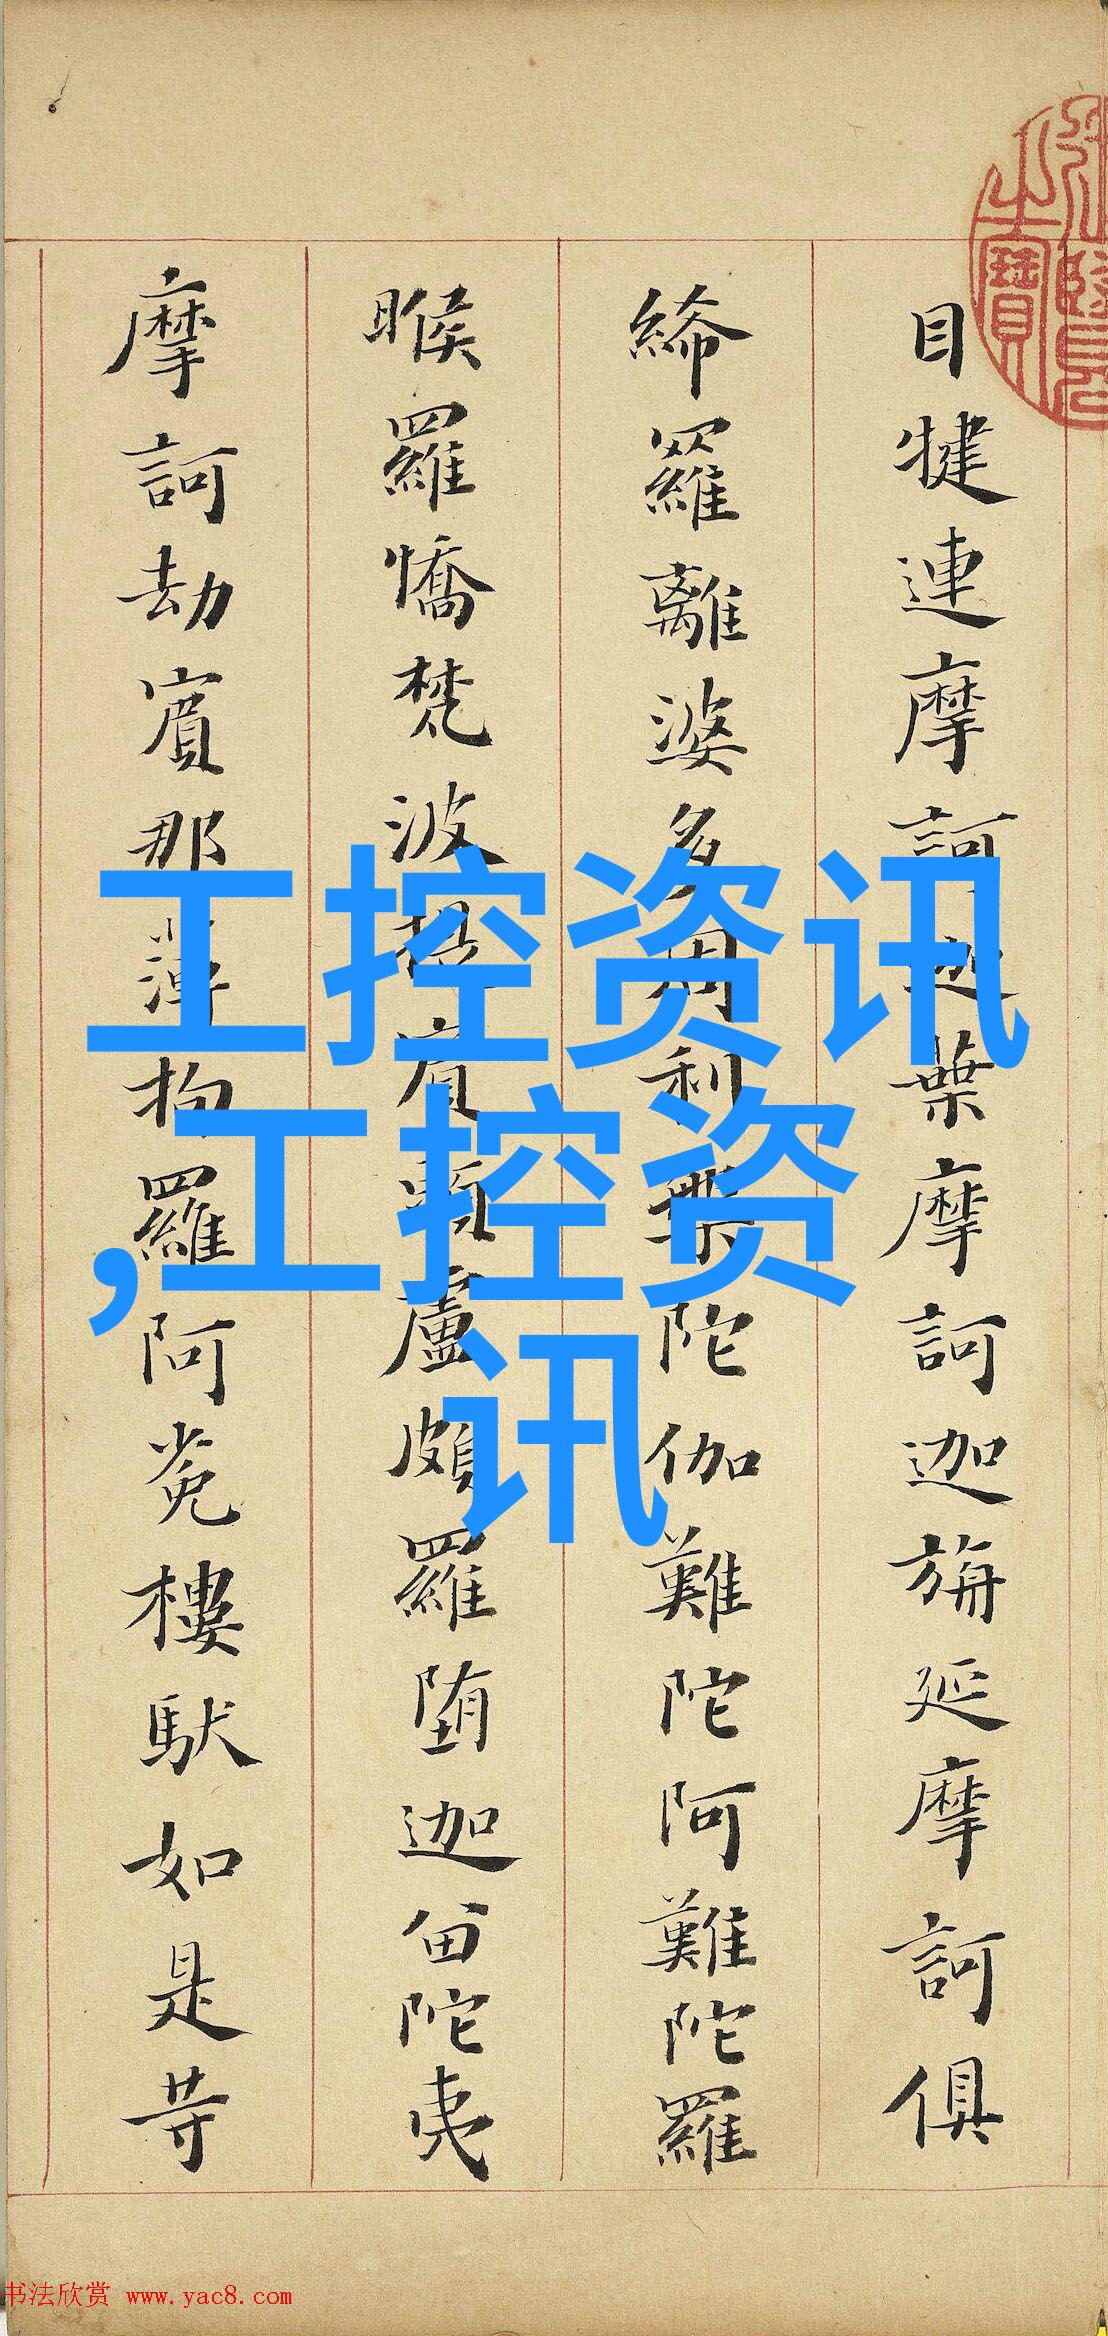 目犍連摩訶迦葉摩訶迦旃延摩訶俱
絺羅離婆多周利槃陀伽難陀阿難陀羅
睺羅憍梵波提賓頭盧頗羅墮迦留陀夷
摩訶劫賓那薄拘羅阿㝹樓馱如是等
之寶
工控资讯
,工控资
讯
书法欣赏 www.yac8.com